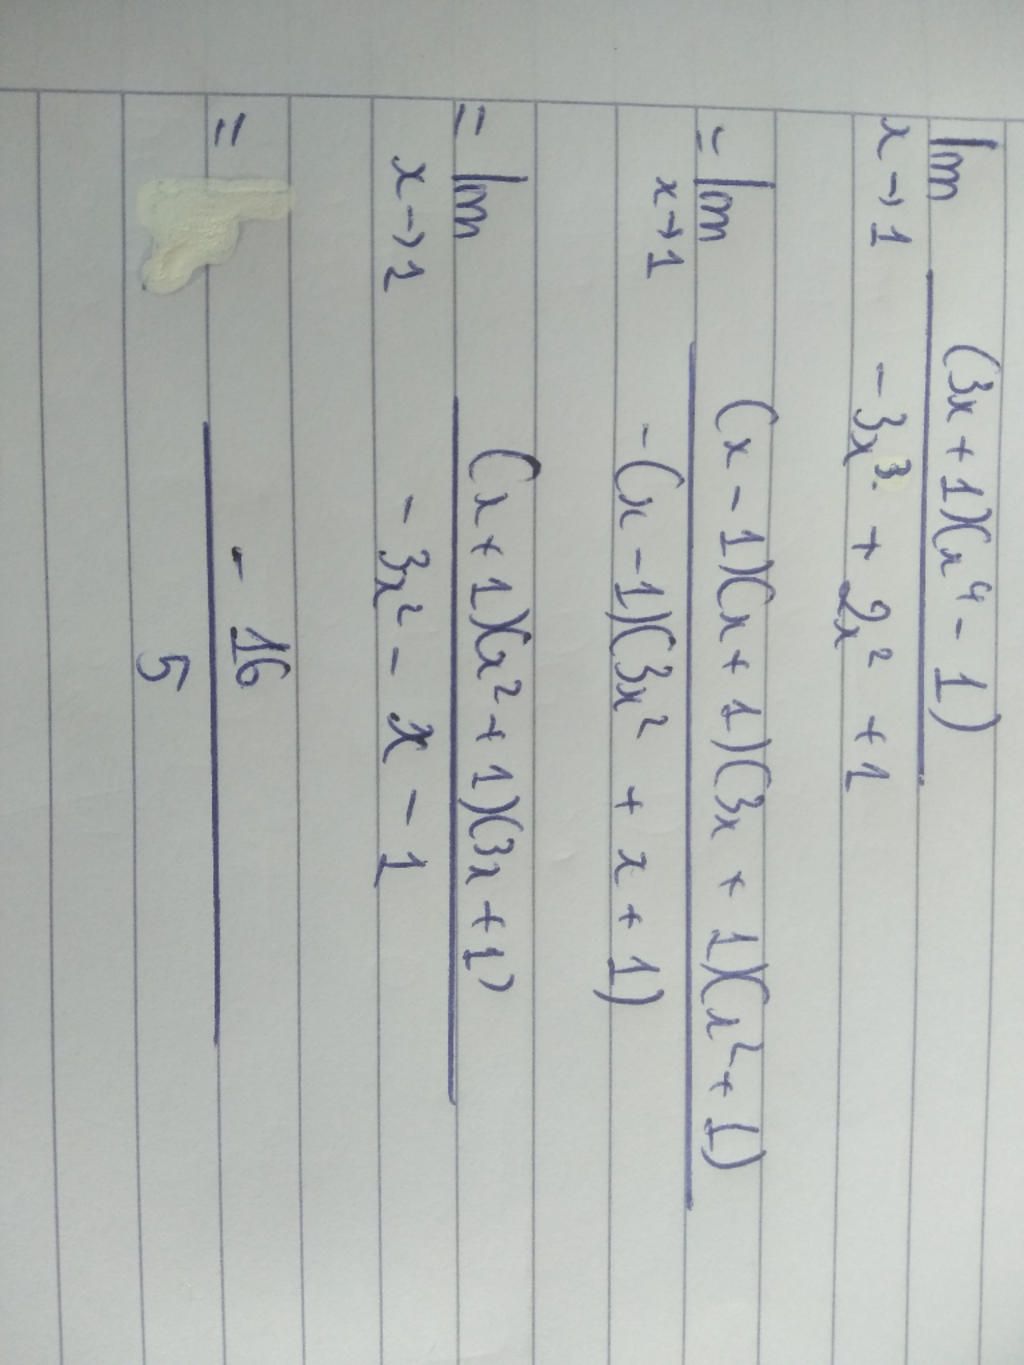 lim (3x + 1)(x⁴ - 1)
x → 1 - 3x³ + 2x² + 1
= lim (x - 1)(x + 1)(3x + 1)(x² + 1)
x → 1 -(x - 1)(3x² + x + 1)
= lim (x + 1)(x² + 1)(3x + 1)
x → 1 - 3x² - x - 1
= - 16
5